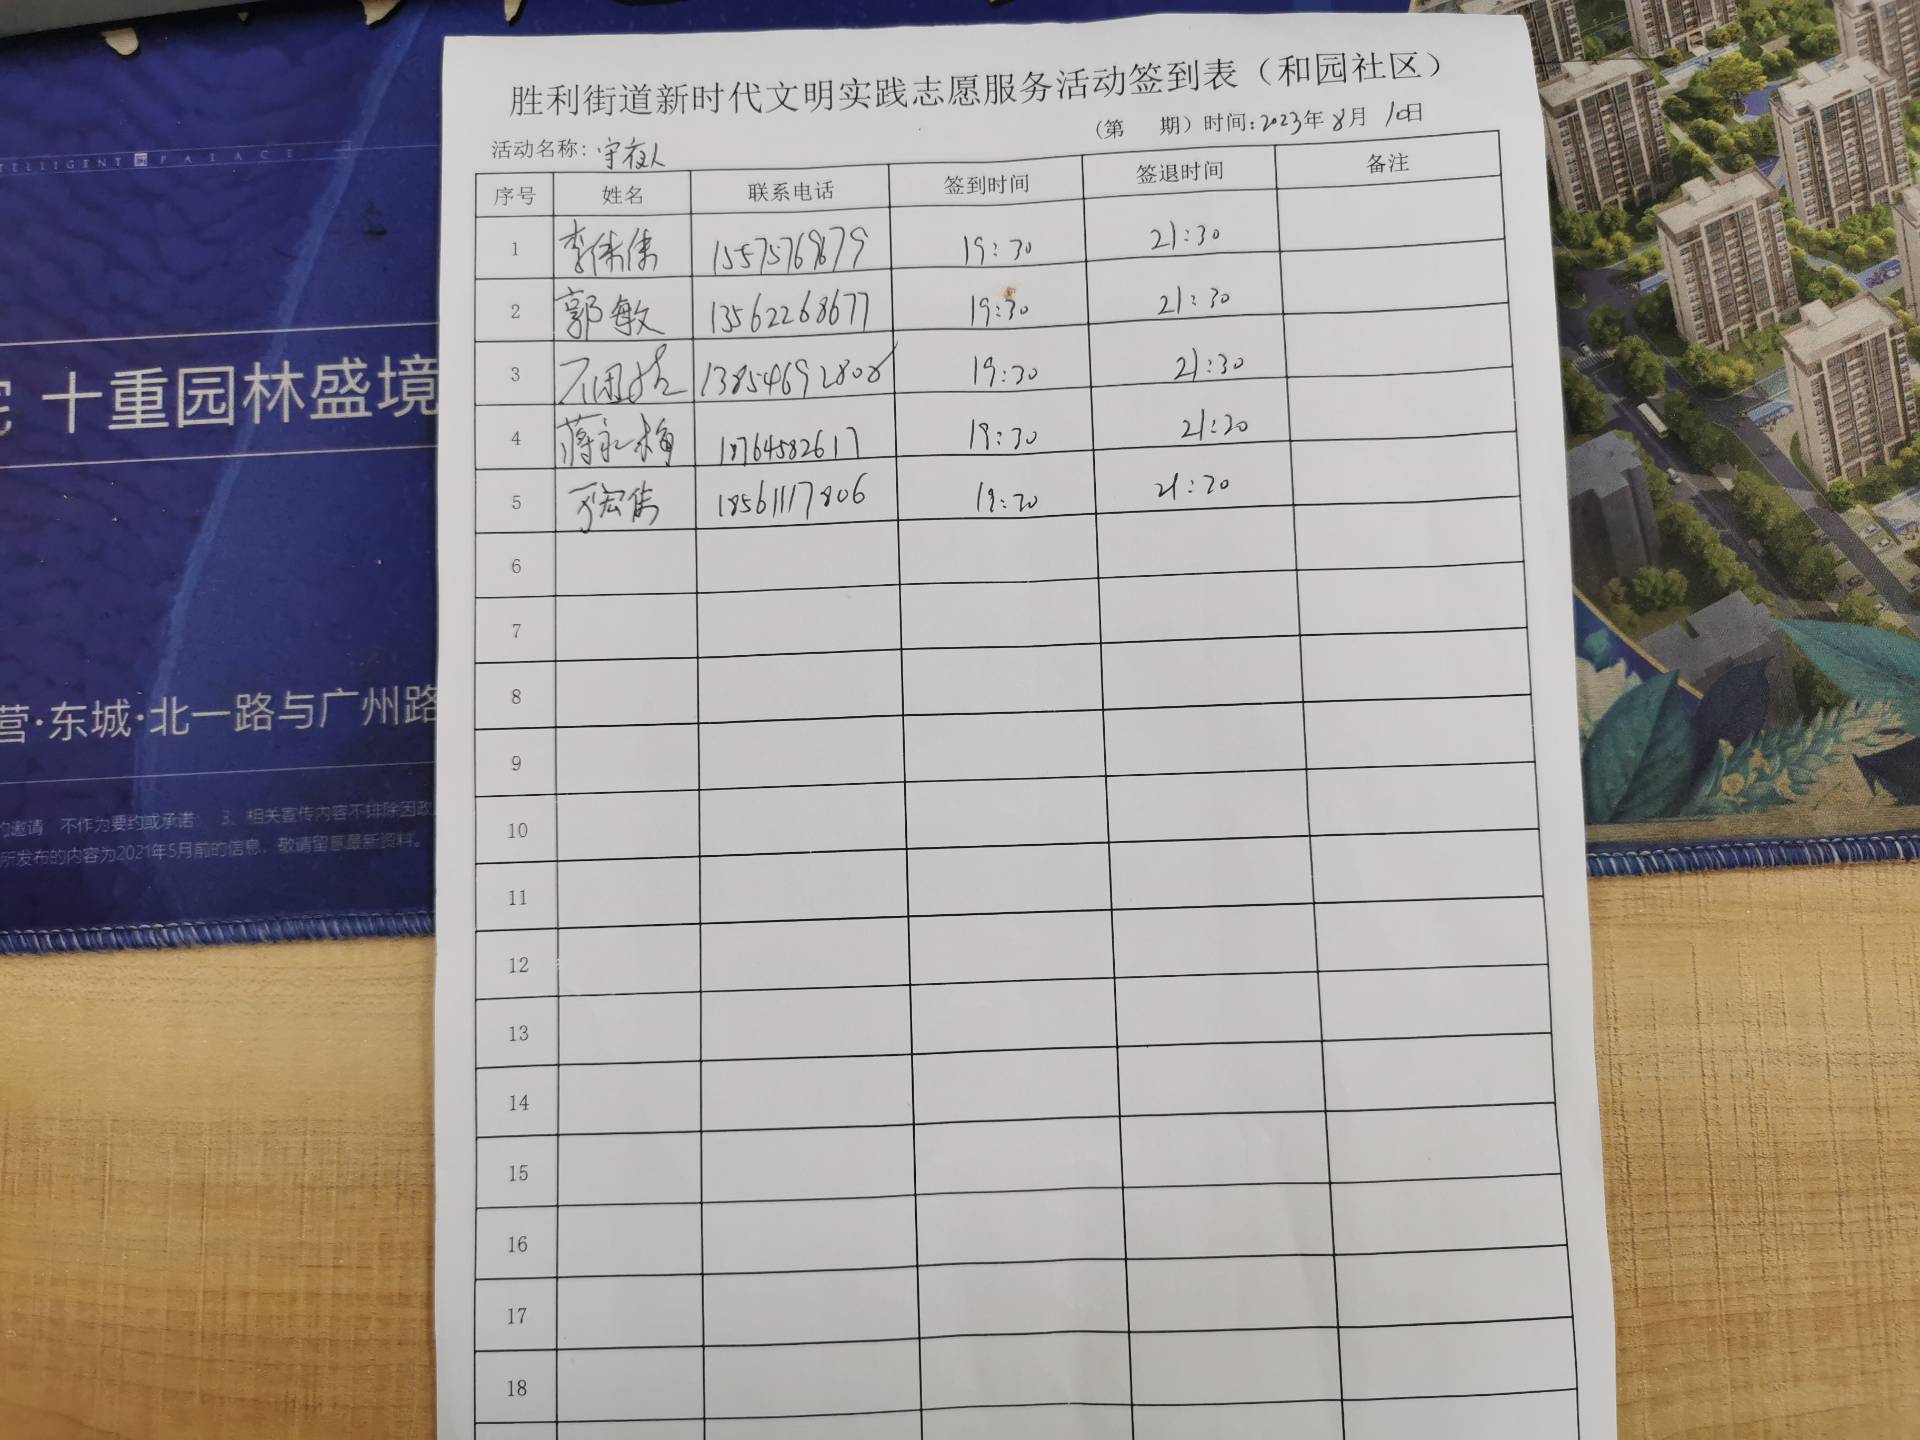 胜利街道新时代文明实践志愿服务活动签到表（和园社区）
活动名称：守夜人 （第 期）时间：2023年8月10日
序号 姓名 联系电话 签到时间 签退时间 备注
1 李伟伟 15575769679 19:30 21:30
2 郭敏 13562268677 19:30 21:30
3 13854692808 19:30 21:30
4 蒋永梅 18764582617 19:30 21:30
5 18561117806 19:30 21:30
6
7
8
9
10
11
12
13
14
15
16
17
18
TELLIGENT PALACE
十重园林盛境
营·东城·北一路与广州路
约邀请 不作为要约或承诺； 3、相关宣传内容不排除因政
所发布的内容为2021年5月前的信息，敬请留意最新资料。